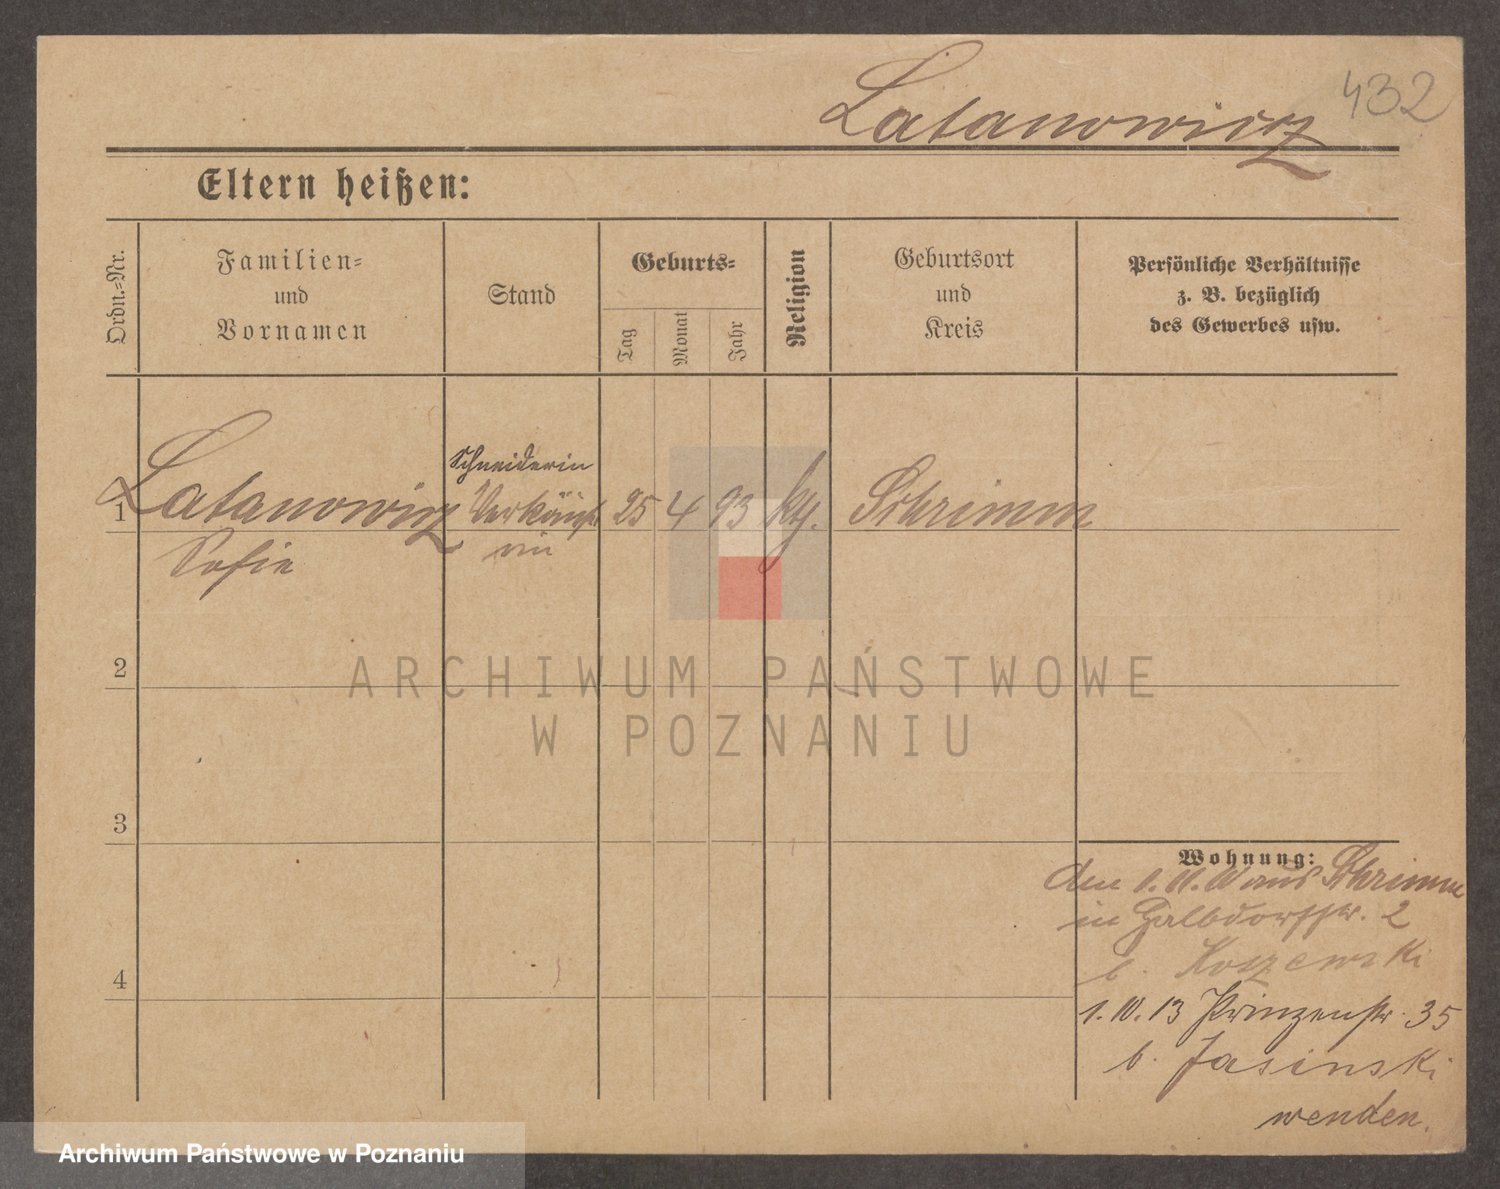 432
Latanowicz
Eltern heißen:
Ordn.=Nr.
Familien=
und
Vornamen
Stand
Geburts=
Tag
Monat
Jahr
Religion
Geburtsort
und
Kreis
Persönliche Verhältnisse
z. B. bezüglich
des Gewerbes usw.
Schneiderin
1 Latanowicz Verkäufer 25 4 93 kath. Schrimm
Sofie in
2
ARCHIWUM PAŃSTWOWE
W POZNANIU
3
Wohnung:
den 1. 11. aus Schrimm
in Halbdorfstr. 2
b. Koszewski
4
1. 10. 13 Prinzenstr. 35
b. Jasinski
wenden.
Archiwum Państwowe w Poznaniu